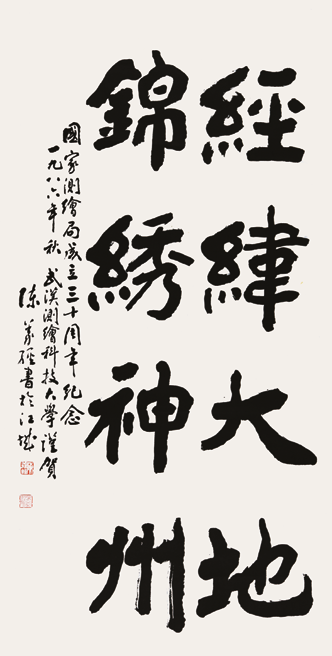 經緯大地
錦綉神州
國家測繪局成立三十周年紀念
一九八六年秋 武漢測繪科技大學謹賀
陳義經書於江城